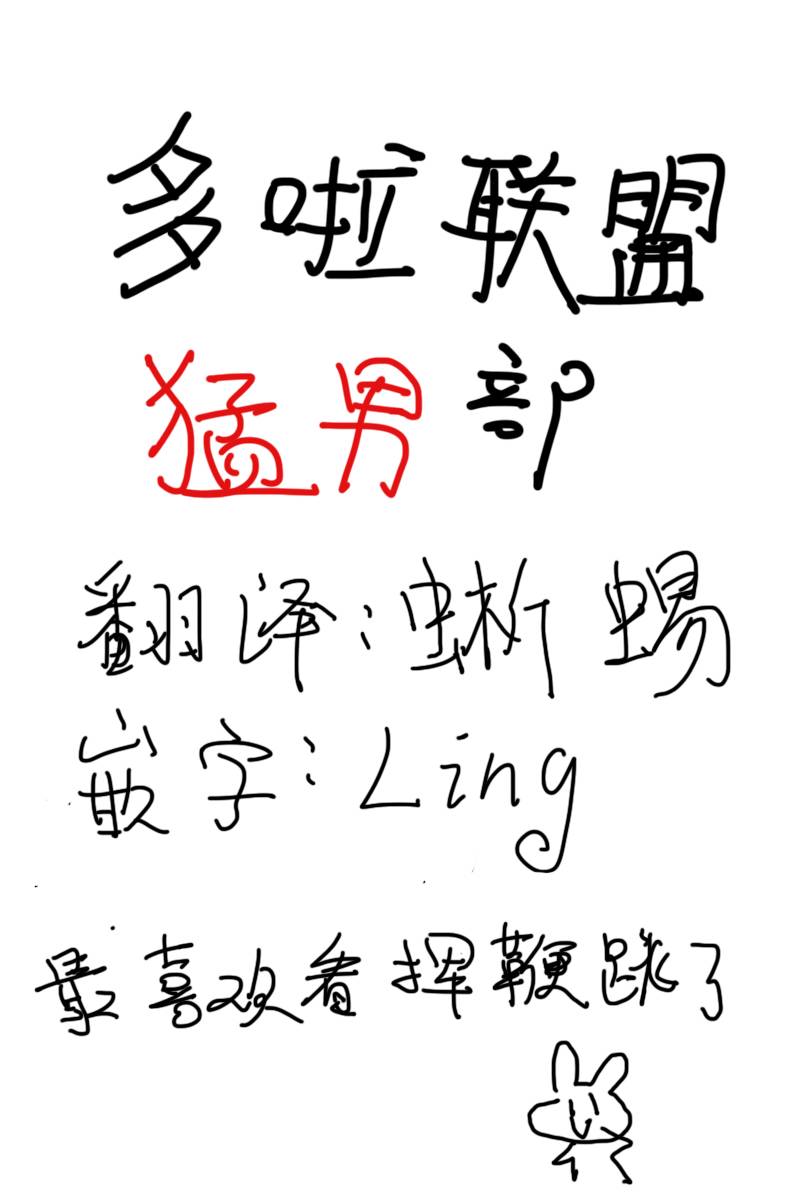 多啦联盟
猛男部
翻译:蜥蜴
嵌字:Ling
最喜欢看挥鞭跳了